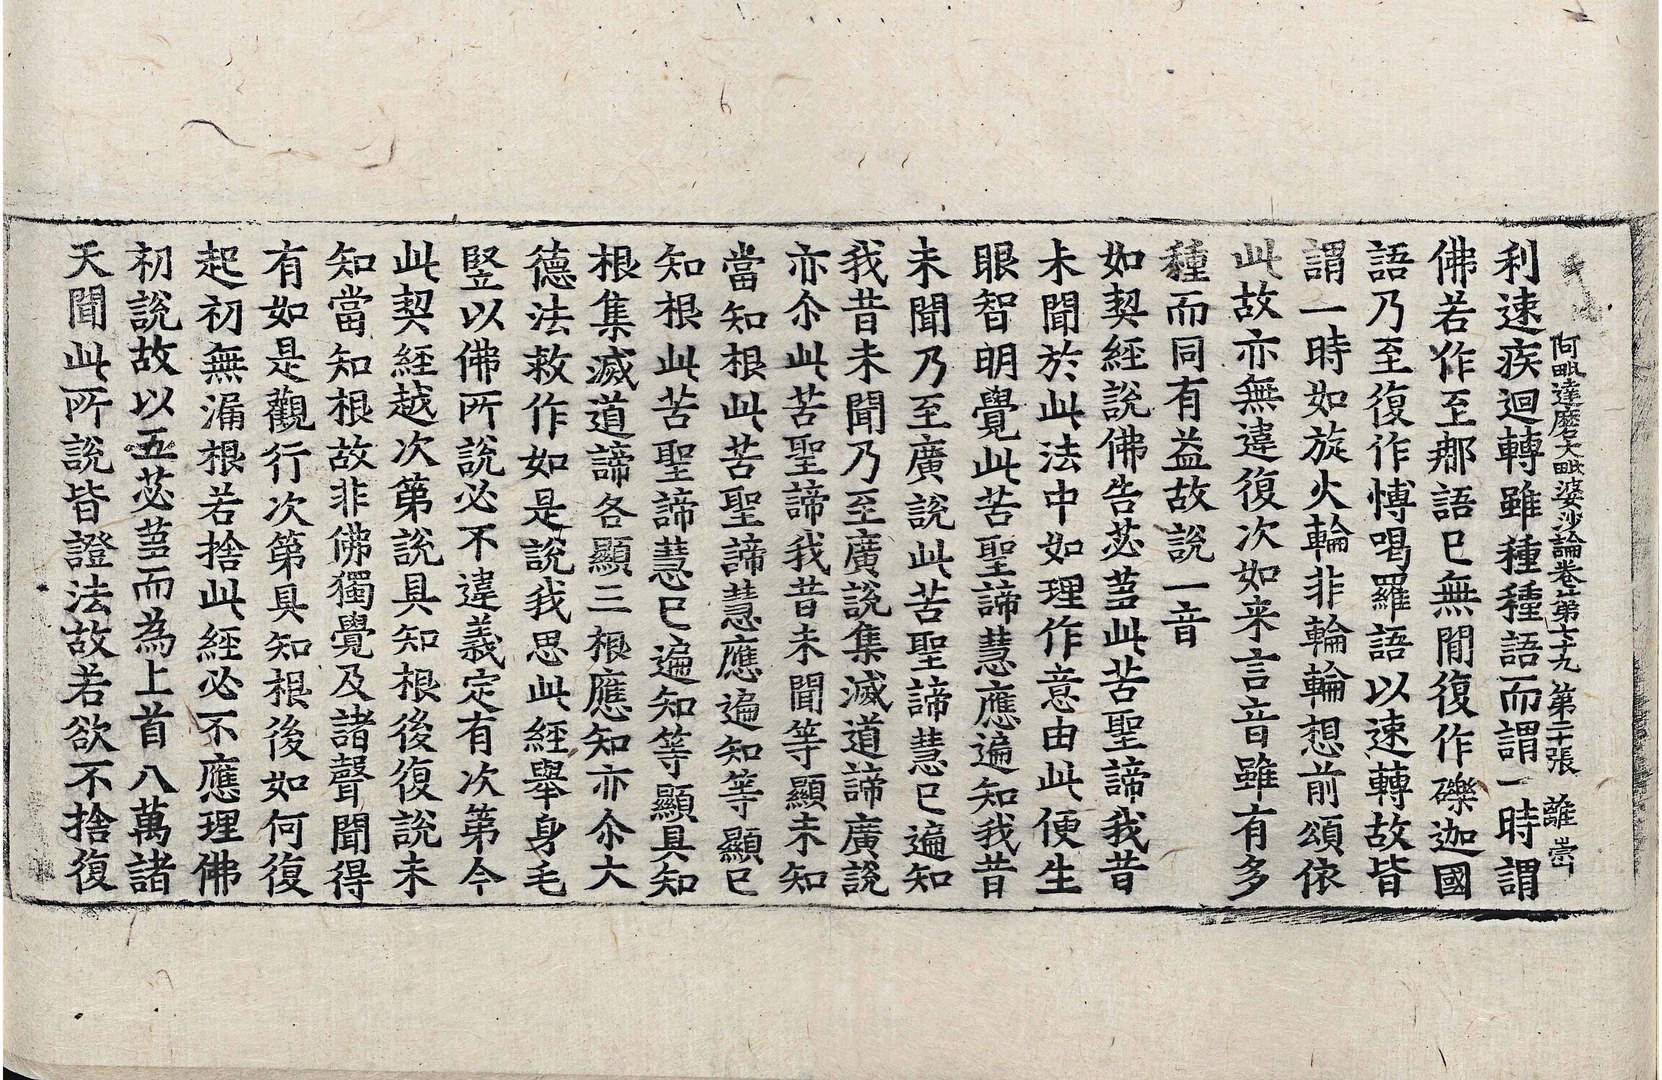 阿毗達磨大毗婆沙論卷第七十九 第二十張 離
利速疾迴轉雖種種語而謂一時謂
佛若作至那語已無閒復作礫迦國
語乃至復作愽喝羅語以速轉故皆
謂一時如旋火輪非輪輪想前頌依
此故亦無違復次如来言音雖有多
種而同有益故說一音
如契經說佛告苾蒭此苦聖諦我昔
未聞於此法中如理作意由此便生
眼智明覺此苦聖諦慧應遍知我昔
未聞乃至廣說此苦聖諦慧已遍知
我昔未聞乃至廣說集滅道諦廣說
亦尒此苦聖諦我昔未聞等顯未知
當知根此苦聖諦慧應遍知等顯已
知根此苦聖諦慧已遍知等顯具知
根集滅道諦各顯三根應知亦尒大
德法救作如是說我思此經舉身毛
竪以佛所說必不違義定有次第今
此契經越次第說具知根後復說未
知當知根故非佛獨覺及諸聲聞得
有如是觀行次第具知根後如何復
起初無漏根若捨此經必不應理佛
初說故以五苾蒭而為上首八萬諸
天聞此所說皆證法故若欲不捨復